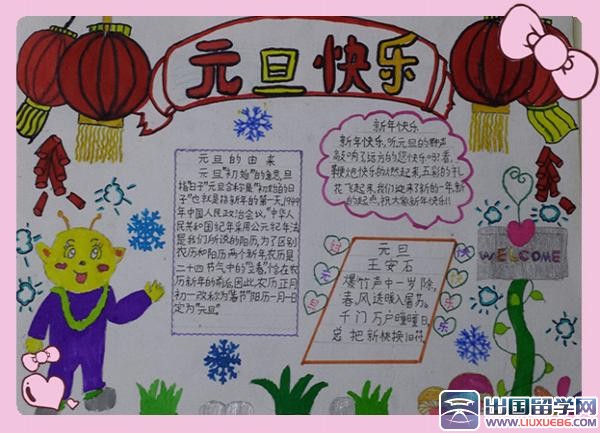 元旦快乐
元旦的由来
元旦"初始"的意思,旦
指"日子"元旦合称是"初始的日
子"也就是指新年的第一天,1949
年中国人民政治会议,"中华人
民共和国纪年采用公元纪年法
是我们所说的阳历,为了区别
农历和阳历两个新年,农历是
二十四节气中的"立春"恰在农
历新年的前后,因此,农历正月
初一改称为"春节"阳历一月一日
定为"元旦"。
新年快乐
新年快乐,听元旦的钟声
敲响了远方的您快乐吗?看,
鞭炮快乐的燃起来,五彩的礼
花飞起来,我们迎来了新的一年,新
的起点,祝大家新年快乐!!
元旦
王安石
爆竹声中一岁除,
春风送暖入屠苏。
千门万户曈曈日,
总把新快换旧符。
WELCOME
出国留学网
WWW.LIUXUE86.COM